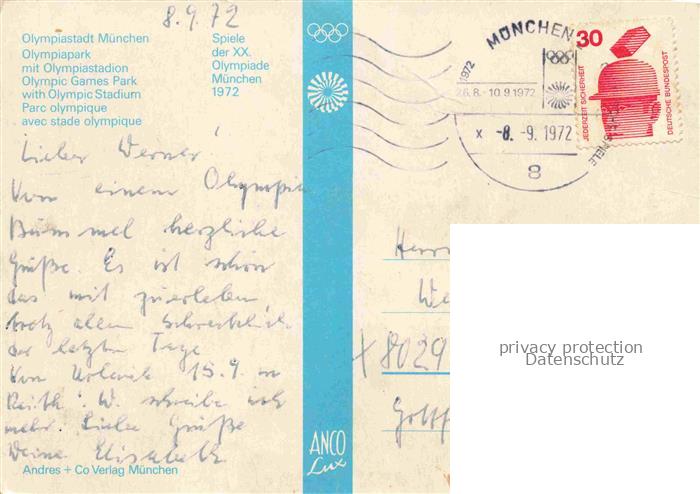 8.9.72
Olympiastadt München
Olympiapark
mit Olympiastadion
Olympic Games Park
with Olympic Stadium
Parc olympique
avec stade olympique
Spiele
der XX.
Olympiade
München
1972
Lieber Werner!
Von einem Olympia
Bummel herzliche
Grüße. Es ist schön
das mit zuerleben,
trotz allem Schrecklich
der letzten Tage
Von Urlaub 15.9. in
Reith. W. schreibe ich
mehr. Liebe Grüße
Deine Elisabeth
Andres + Co Verlag München
ANCO
Lux
MÜNCHEN
1972
26.8.-10.9.1972
x -8.-9.1972
8
SPIELE
30
JEDERZEIT SICHERHEIT
DEUTSCHE BUNDESPOST
Herrn
We
8029
privacy protection
Datenschutz